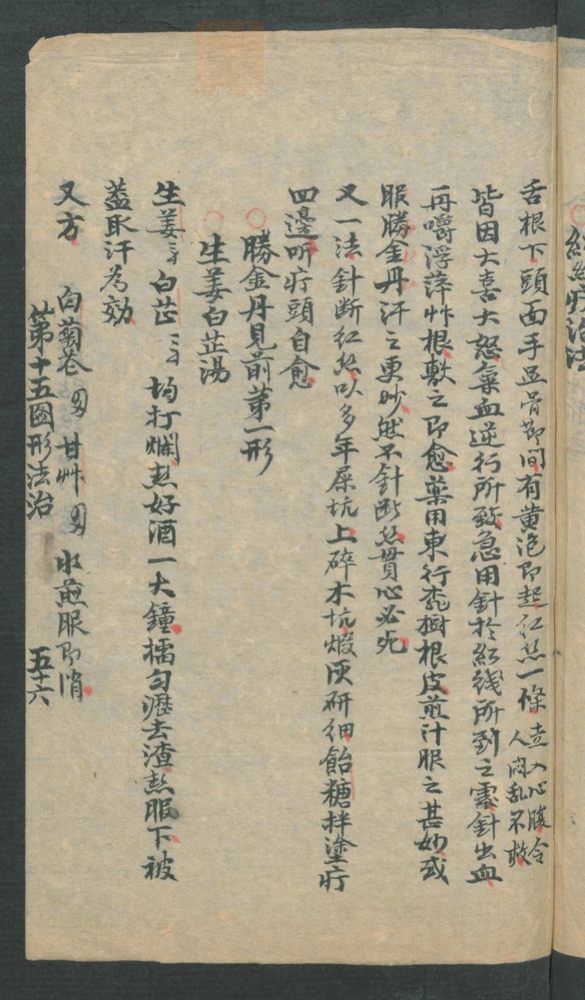 紅絲疔治法
舌根下頭面手足骨節间有黄泡即起红絲一條走入心腹令人闷乱不救
皆因大喜大怒氣血逆行所致急用針於紅綫所到之處針出血
再嚼浮萍艸根敷之即愈藥用東行桃樹根皮煎汁服之甚妙或
服勝金丹汗之更妙然不針断絲貫心必死
又一法針断红絲以多年屎坑上碎木坑煅灰研细飴糖拌塗疔
四邊听疔頭自愈
○勝金丹見前第一形
○生姜白芷湯
生姜三錢 白芷三錢 均打爛热好酒一大鐘擂匀瀝去渣热服下被
蓋取汗為効
又方 白菊花四 甘艸四 水煎服即消
第十五图形法治 五十六